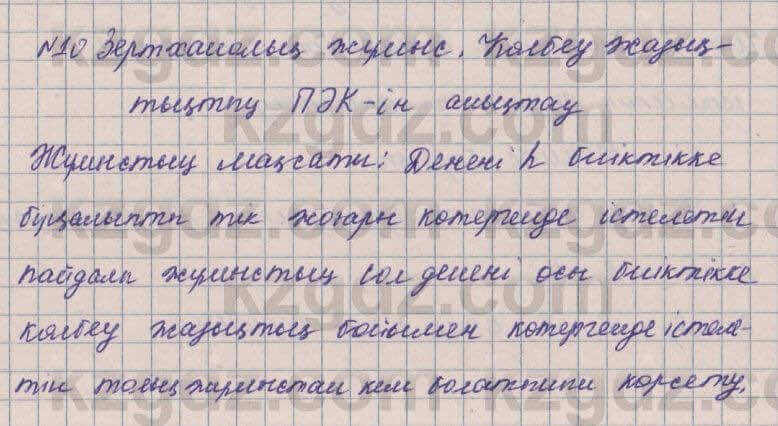 №10 Зертханалық жұмыс. Көлбеу жазық-
тықтың ПӘК-ін анықтау
Жұмыстың мақсаты: Денені h биіктікке
бірқалыпты тік жоғары көтергенде істелетін
пайдалы жұмыстың сол денені осы биіктікке
көлбеу жазықтың бойымен көтергенде істеле-
тін толық жұмыстан кем болатынын көрсету.
kzgdz.com